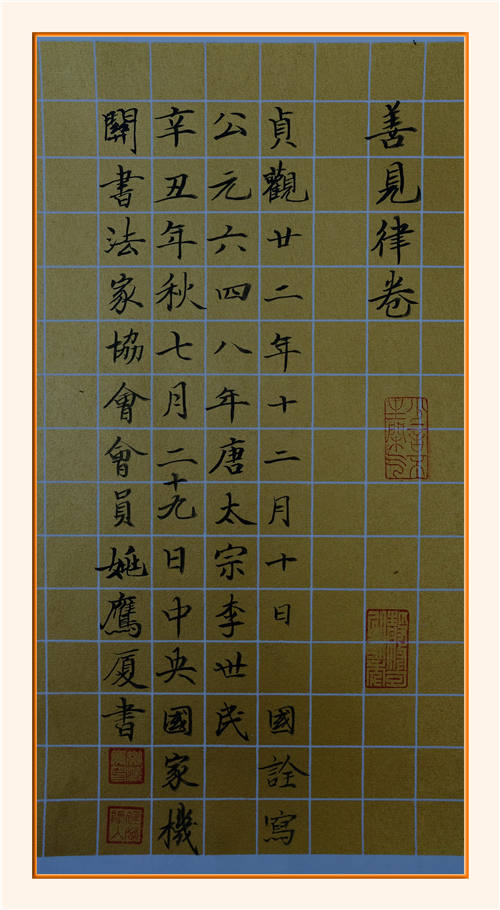 善見律卷
貞觀廿二年十二月十日 國詮寫
公元六四八年唐太宗李世民
辛丑年秋七月二十九日中央國家機
關書法家協會會員姚鷹厦書